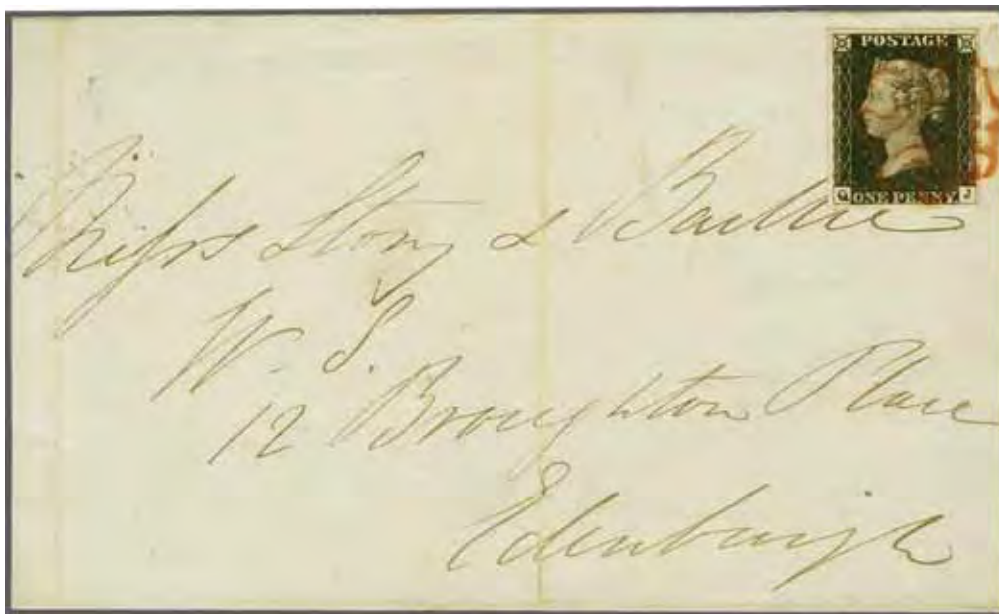 POSTAGE
Q ONE PENNY J
Messrs Story & Baillie
W. S.
12 Broughton Place
Edinburgh